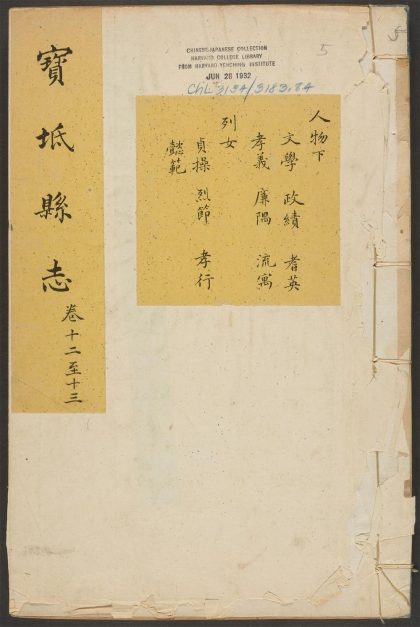 寶坻縣志
卷十二至十三
CHINESE-JAPANESE COLLECTION
HARVARD COLLEGE LIBRARY
FROM HARVARD YENCHING INSTITUTE
JUN 28 1932
ChL 3134/3183.84
5
人物下
文學 政績 耆英
孝義 廉隅 流寓
列女
貞操 烈節 孝行
懿範